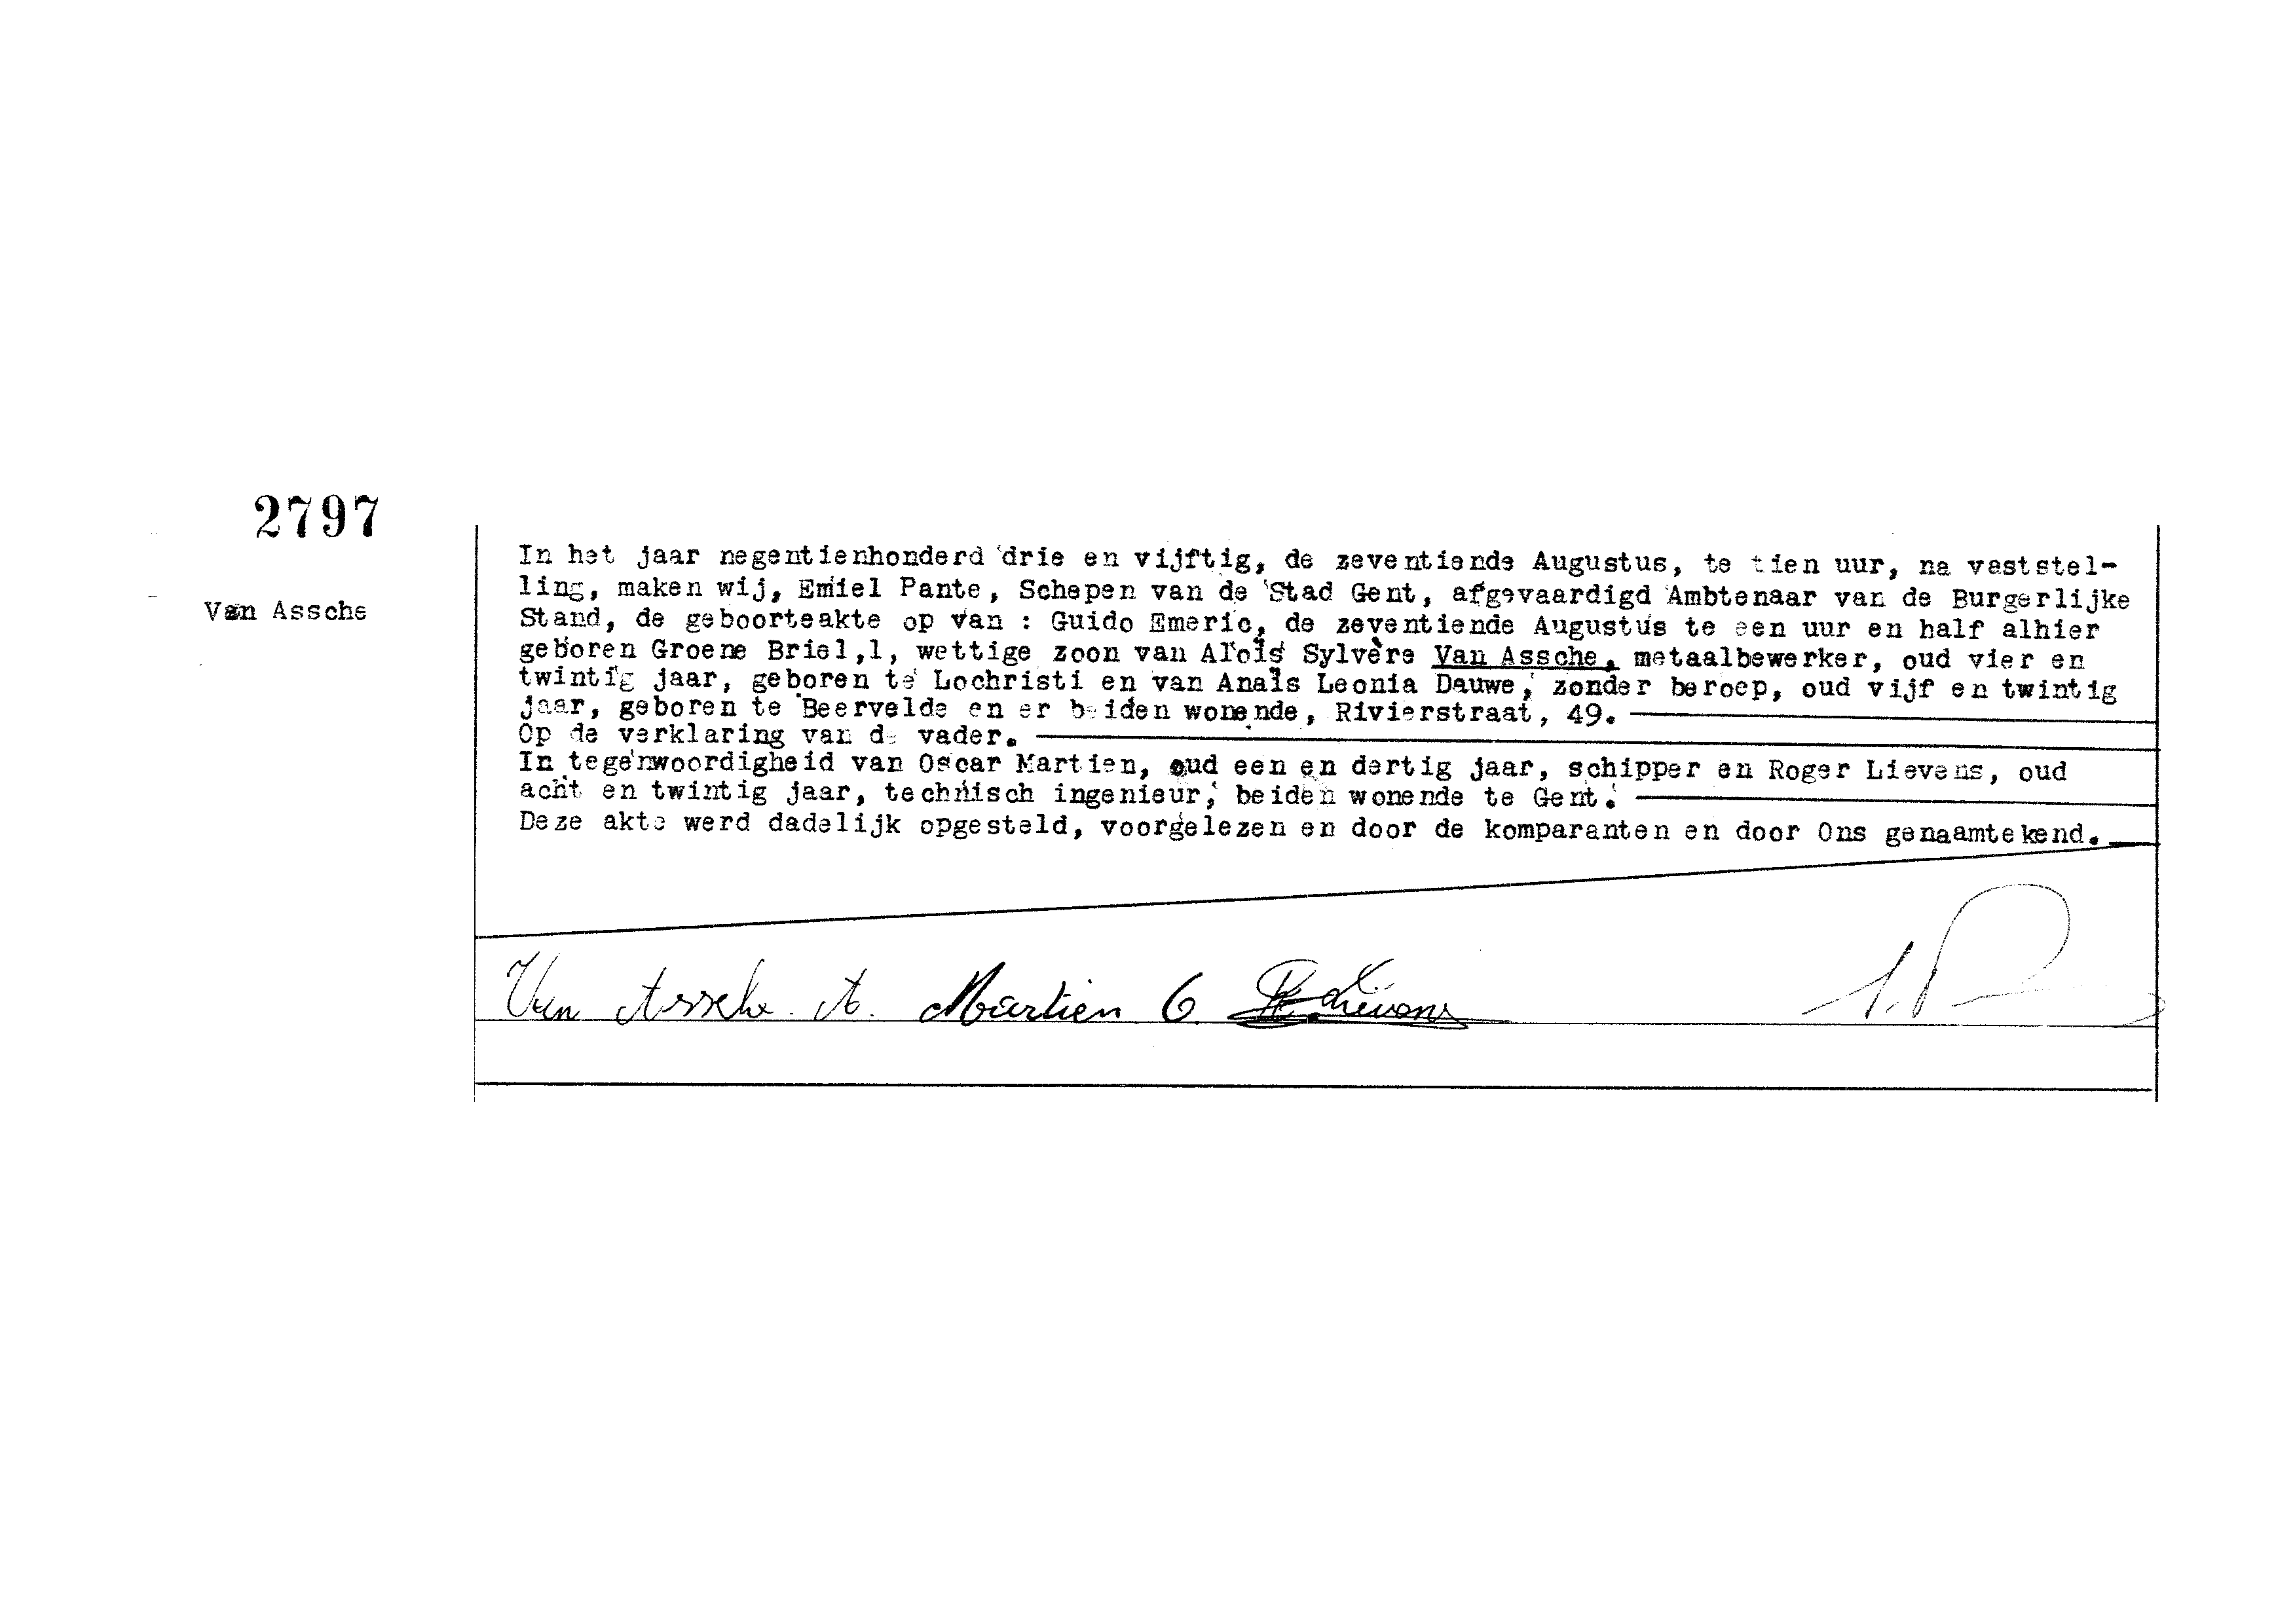 2797
Van Assche
In het jaar negentienhonderd drie en vijftig, de zeventiende Augustus, te tien uur, na vaststel-
ling, maken wij, Emiel Pante, Schepen van de Stad Gent, afgevaardigd Ambtenaar van de Burgerlijke
Stand, de geboorteakte op van : Guido Emeric, de zeventiende Augustus te een uur en half alhier
geboren Groene Briel,1, wettige zoon van Aloïs Sylvère Van Assche, metaalbewerker, oud vier en
twintig jaar, geboren te Lochristi en van Anaïs Leonia Dauwe, zonder beroep, oud vijf en twintig
jaar, geboren te Beervelde en er beiden wonende, Rivierstraat, 49.
Op de verklaring van de vader.
In tegenwoordigheid van Oscar Martien, oud een en dertig jaar, schipper en Roger Lievens, oud
acht en twintig jaar, technisch ingenieur, beiden wonende te Gent.
Deze akte werd dadelijk opgesteld, voorgelezen en door de komparanten en door Ons genaamtekend.
Van Assche A. Martien O. R. Lievens